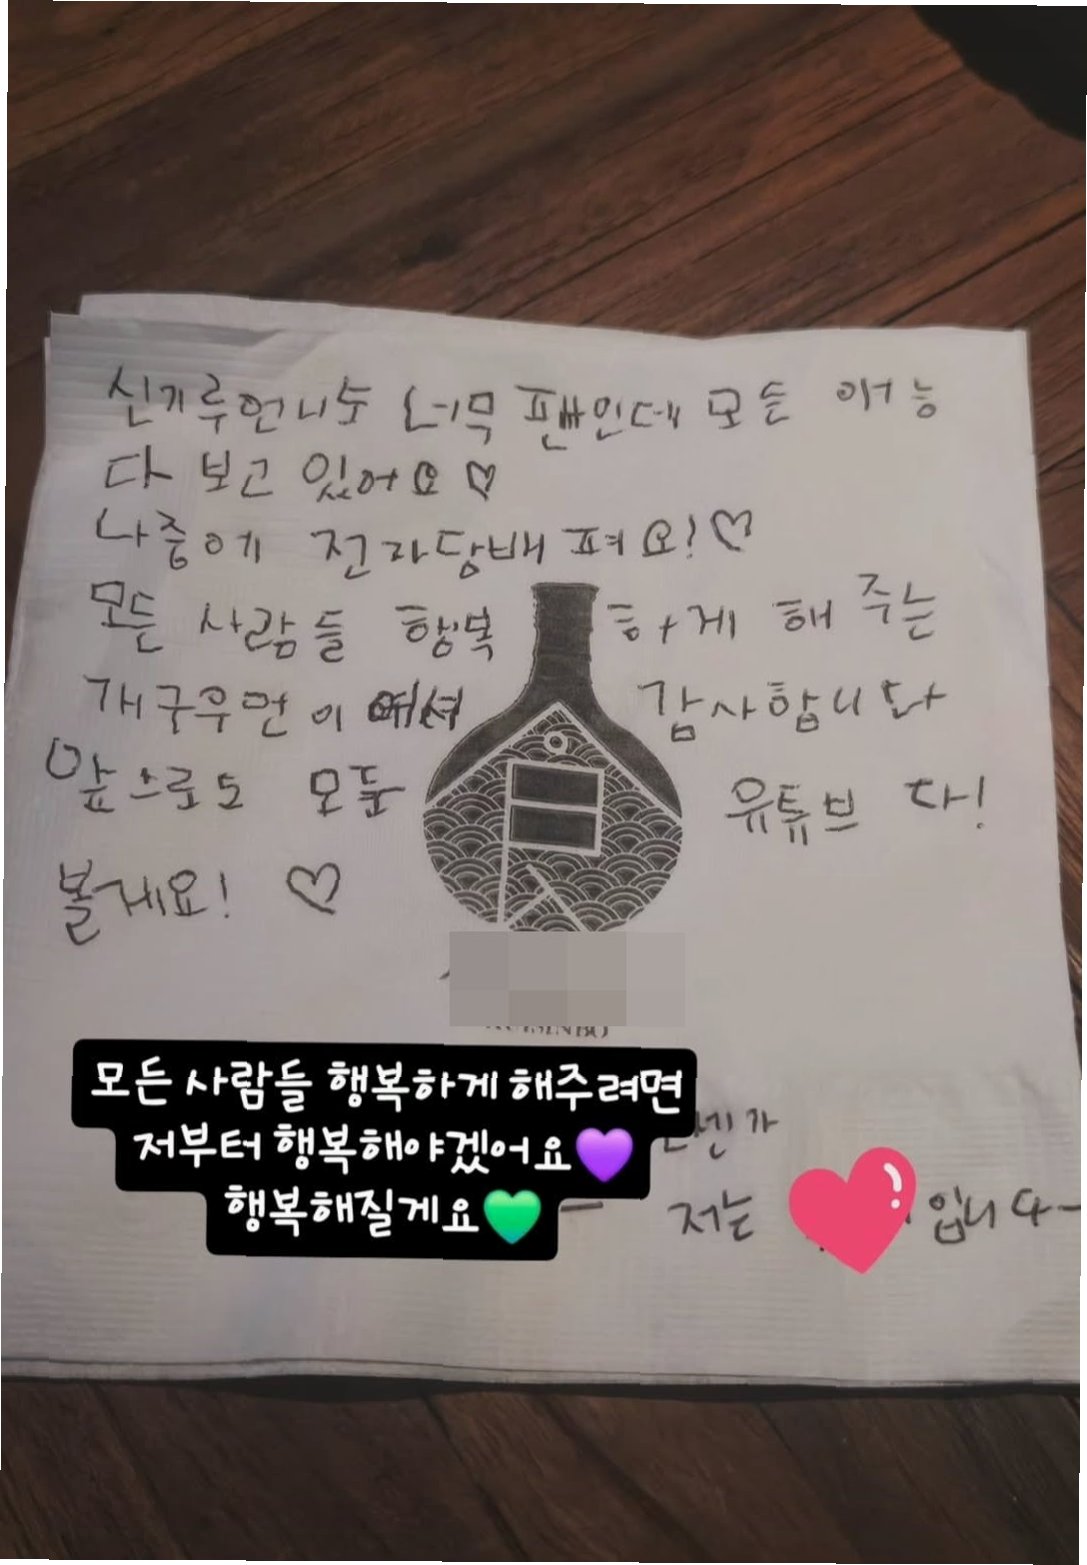 신기루언니 너무 팬인데 모든 예능
다 보고 있어요♡
나중에 전자담배 펴요!♡
모든 사람들 행복 하게 해 주는
개그우먼이 감사합니다
앞으로도 모든 유튜브 다!
볼게요! ♡
모든 사람들 행복하게 해주려면
저부터 행복해야겠어요💜
행복해질게요💚
저는 입니다